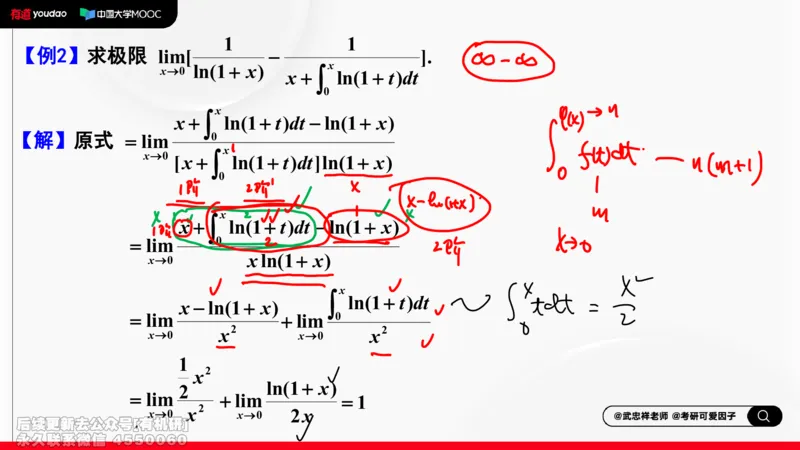 有道 youdao 中国大学MOOC
【例2】求极限 lim_{x→0}[1/ln(1+x) − 1/(x+∫_0^x ln(1+t)dt)].
∞−∞
【解】原式 = lim_{x→0} (x+∫_0^x ln(1+t)dt−ln(1+x))/([x+∫_0^x ln(1+t)dt]ln(1+x))
∫_0^{φ(x)→n} f(t)dt — n(m+1)
m
x→0
1阶 2阶 x
x−ln(1+x)
= lim_{x→0} (x+∫_0^x ln(1+t)dt−ln(1+x))/(x ln(1+x))
2阶
= lim_{x→0} (x−ln(1+x))/x² + lim_{x→0} (∫_0^x ln(1+t)dt)/x² ~ ∫_0^x tdt = x²/2
= lim_{x→0} (1/2 x²)/x² + lim_{x→0} ln(1+x)/2x = 1
后续更新去公众号[有机研]
永久联系微信 4550060
@武忠祥老师 @考研可爱因子